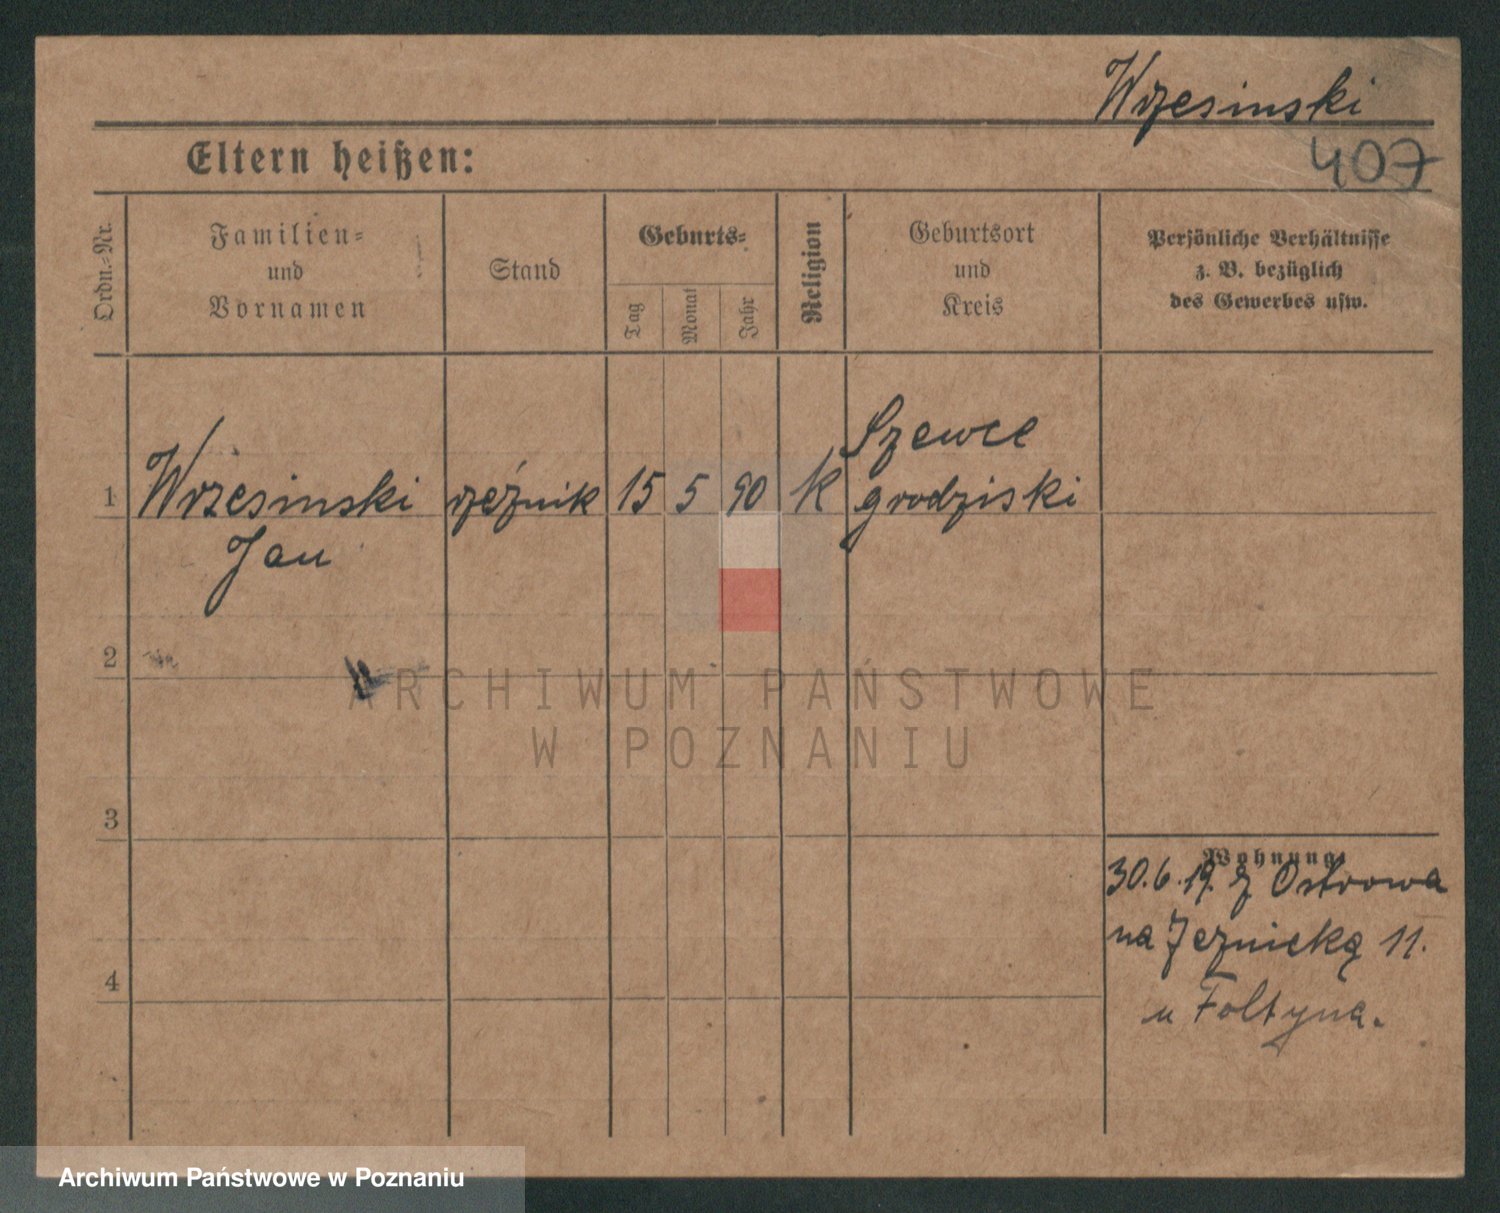 Wrzesinski
407
Eltern heißen:
Ordn.-Nr.
Familien-
und
Vornamen
Stand
Geburts-
Tag
Monat
Jahr
Religion
Geburtsort
und
Kreis
Persönliche Verhältnisse
z. B. bezüglich
des Gewerbes usw.
1
Wrzesinski
Jan
rzeźnik
15
5
90
K
Szewce
grodziski
2
3
4
Wohnung:
30.6.19. z Ostrowa
na Jeznicką 11.
u Foltyna.
ARCHIWUM PAŃSTWOWE
W POZNANIU
Archiwum Państwowe w Poznaniu